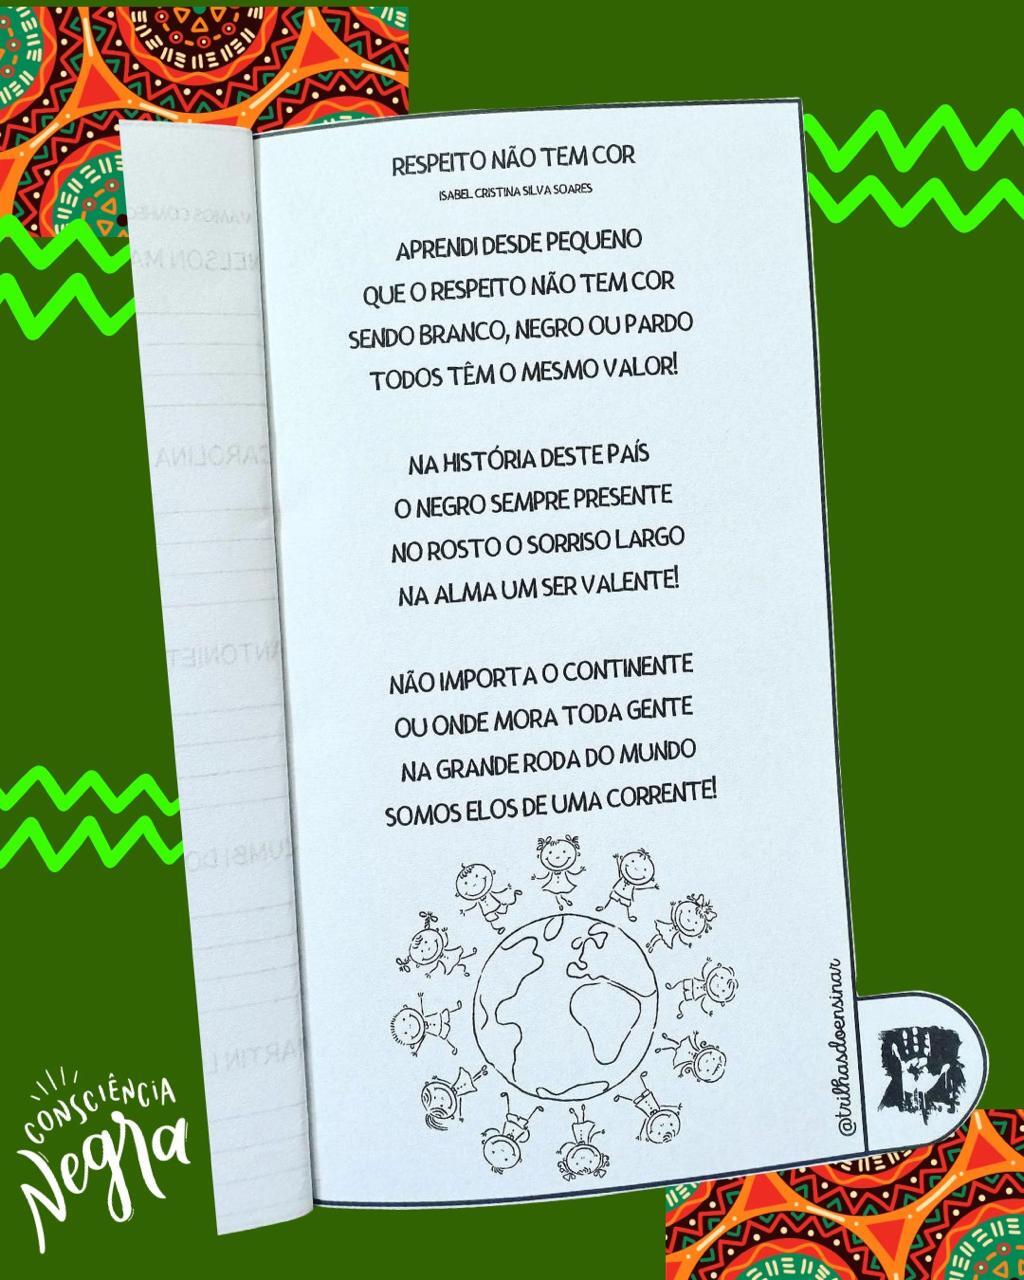 RESPEITO NÃO TEM COR
ISABEL CRISTINA SILVA SOARES
APRENDI DESDE PEQUENO
QUE O RESPEITO NÃO TEM COR
SENDO BRANCO, NEGRO OU PARDO
TODOS TÊM O MESMO VALOR!
NA HISTÓRIA DESTE PAÍS
O NEGRO SEMPRE PRESENTE
NO ROSTO O SORRISO LARGO
NA ALMA UM SER VALENTE!
NÃO IMPORTA O CONTINENTE
OU ONDE MORA TODA GENTE
NA GRANDE RODA DO MUNDO
SOMOS ELOS DE UMA CORRENTE!
@trilhasdoensinar
CONSCIÊNCIA
Negra